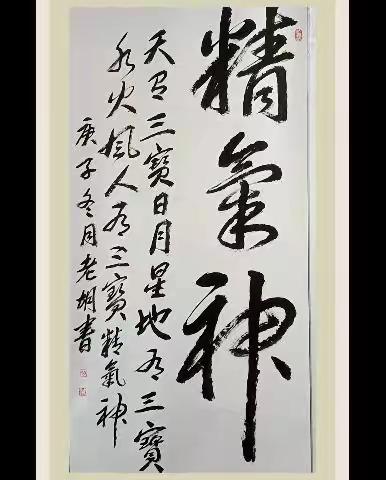 精氣神
天有三寶日月星地有三寶
水火風人有三寶精氣神
庚子冬月老胡書